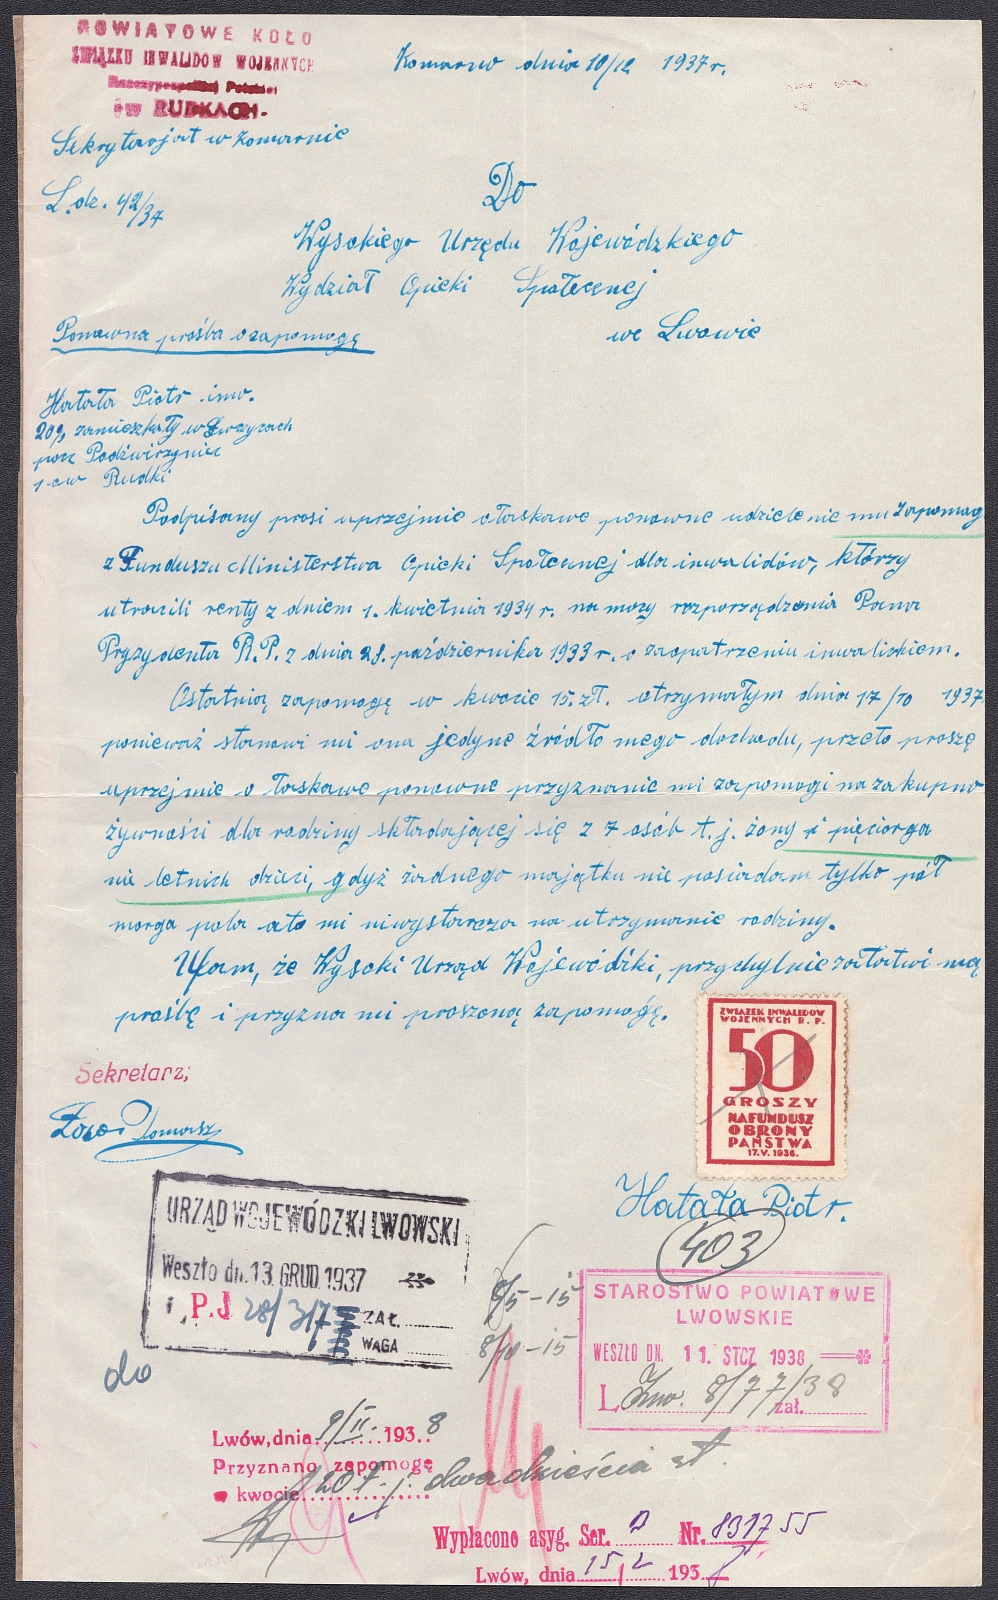 POWIATOWE KOŁO
ZWIĄZKU INWALIDÓW WOJENNYCH
Rzeczypospolitej Polskiej
w RUDKACH.
Komarno dnia 10/12 1937 r.
Sekretarjat w Komarnie
L. dz. 42/37
Do
Wysokiego Urzędu Wojewódzkiego
Wydział Opieki Społecznej
we Lwowie
Ponowna prośba o zapomogę
Hatała Piotr inw.
20% zamieszkały w
pocz Podzwirzyniec
Rudki
Podpisany prosi uprzejmie o łaskawe ponowne udzielenie mu zapomog
z Funduszu Ministerstwa Opieki Społecznej dla inwalidów, którzy
utracili renty z dniem 1. kwietnia 1934 r. na mocy rozporządzenia Pana
Prezydenta R.P. z dnia 28. października 1933 r. o zaopatrzeniu inwalidzkiem.
Ostatnią zapomogę w kwocie 15. zł. otrzymałym dnia 17/10 1937
ponieważ stanowi mi ona jedyne źródło mego dochodu, przeto proszę
uprzejmie o łaskawe ponowne przyznanie mi zapomogi na zakupno
żywności dla rodziny składającej się z 7 osób t. j. żony i pięciorga
nie letnich dzieci, gdyż żadnego majątku nie posiadam tylko pół
morga pola a to mi niwystarcza na utrzymanie rodziny.
Ufam, że Wysoki Urząd Wojewódzki, przychylnie załatwi mą
prośbę i przyzna mi proszoną zapomogę.
ZWIĄZEK INWALIDÓW
WOJENNYCH R. P.
50
GROSZY
NA FUNDUSZ
OBRONY
PAŃSTWA
17.V.1936.
Sekretarz;
Tomasz
Hatała Piotr.
403
URZĄD WOJEWÓDZKI LWOWSKI
Weszło dn. 13. GRUD. 1937
P.J 28/317 ZAŁ.
WAGA
do
8/5 - 15
8/10 - 15
STAROSTWO POWIATOWE
LWOWSKIE
WESZŁO DN. 11. STCZ 1938
L. Inw. 8/77/38
zał.
Lwów, dnia 9/II. 1938
Przyznano zapomogę
w kwocie 20 t. j. dwadzieścia zł.
Wypłacono asyg. Ser. D Nr. 831755
Lwów, dnia 15/2 1938